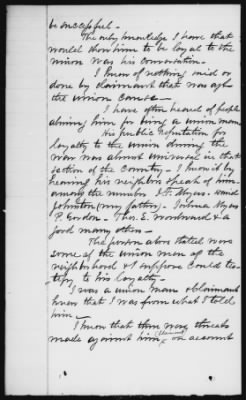 be successful -
The only knowledge I have that
would show him to be loyal to the
union was his conversation.
I know of nothing said or
done by claimant that was agst
the union cause -
I have often heard of people
abusing him for being a union man
His public reputation for
loyalty to the union during the
war was almost universal in that
section of the country - I know it by
hearing his neighbors speak of him
among the number Myers. David
Johnston (my father) - Joshua Myers
P. Gordon - Thos. E. Woodward & a
good many others -
The person above stated were
some of the union men of the
neighborhood & I suppose could tes-
tify to his loyalty
I was a union man & claimant
knew that I was from what I told
him -
I know that there were threats
made against him on account